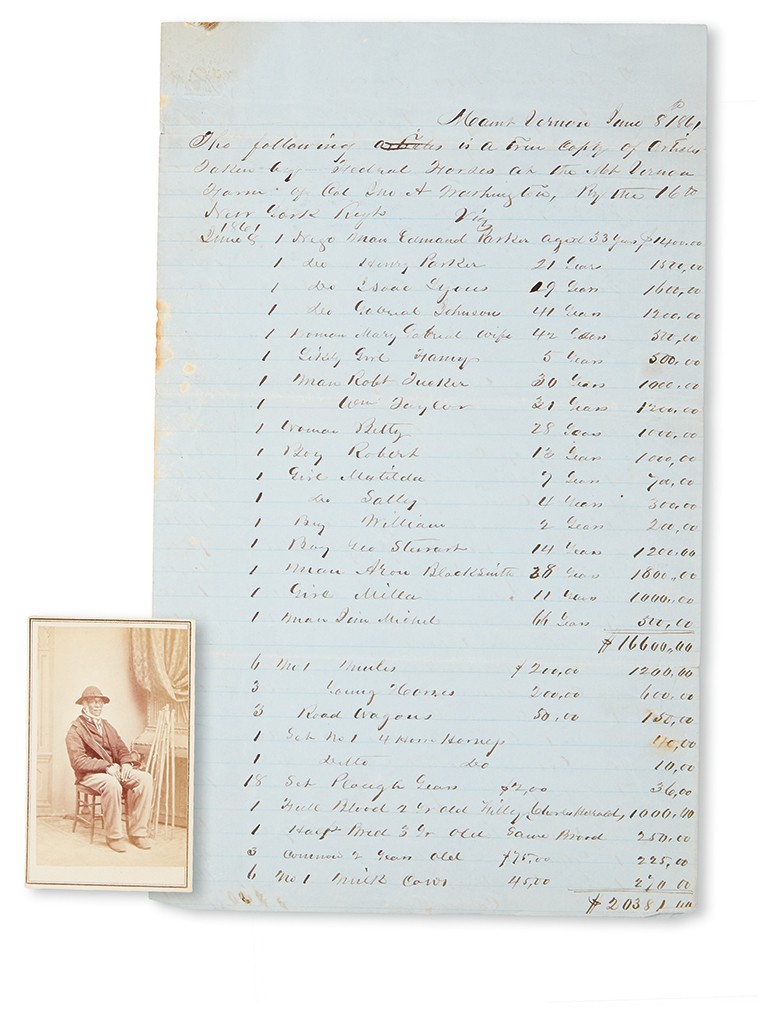 Mount Vernon June 8th 1861
The following is a True Copy of Articles
Taken by Federal Forces at the Mt Vernon
Farm of Col Jno A Washington, By the 16th
New York Regt Viz
1861
June 8 1 Nego Man Edmund Parker aged 33 Years $1400.00
1 do Henry Parker 21 Years 1500,00
1 do Isaac Lyons 19 Years 1600,00
1 do Gabriel Johnson 41 Years 1200.00
1 Woman Mary Gabriel Wife 42 Years 500,00
1 Likely Girl Fanny 5 Years 500,00
1 Man Robt Tucker 30 Years 1000,00
1 Wm Taylor 31 Years 1200,00
1 Woman Betty 28 Years 1000,00
1 Boy Robert 13 Years 1000,00
1 Girl Matilda 9 Years 700,00
1 do Sally 4 Years 300,00
1 Boy William 2 Years 200,00
1 Boy Geo Stewart 14 Years 1200.00
1 Man Aron Blacksmith 28 Years 1800,00
1 Girl Milla 11 Years 1000,00
1 Man Jim Michel 66 Years 500,00
$16600,00
6 No 1 Mules $200,00 1200,00
3 Young Horses 200,00 600,00
3 Road Wagons 50,00 150,00
1 Set No 1 4 Horse Harness 40,00
1 ditto do 10,00
18 Set Plough Gears $2,00 36,00
1 Full Blood 2 Yr old Filly, 1000,00
1 Half Bred 3 Yr old Same Brood 250,00
3 Common 2 Years old $75,00 225,00
6 No 1 Milk Cows 45,00 270,00
$20381,00